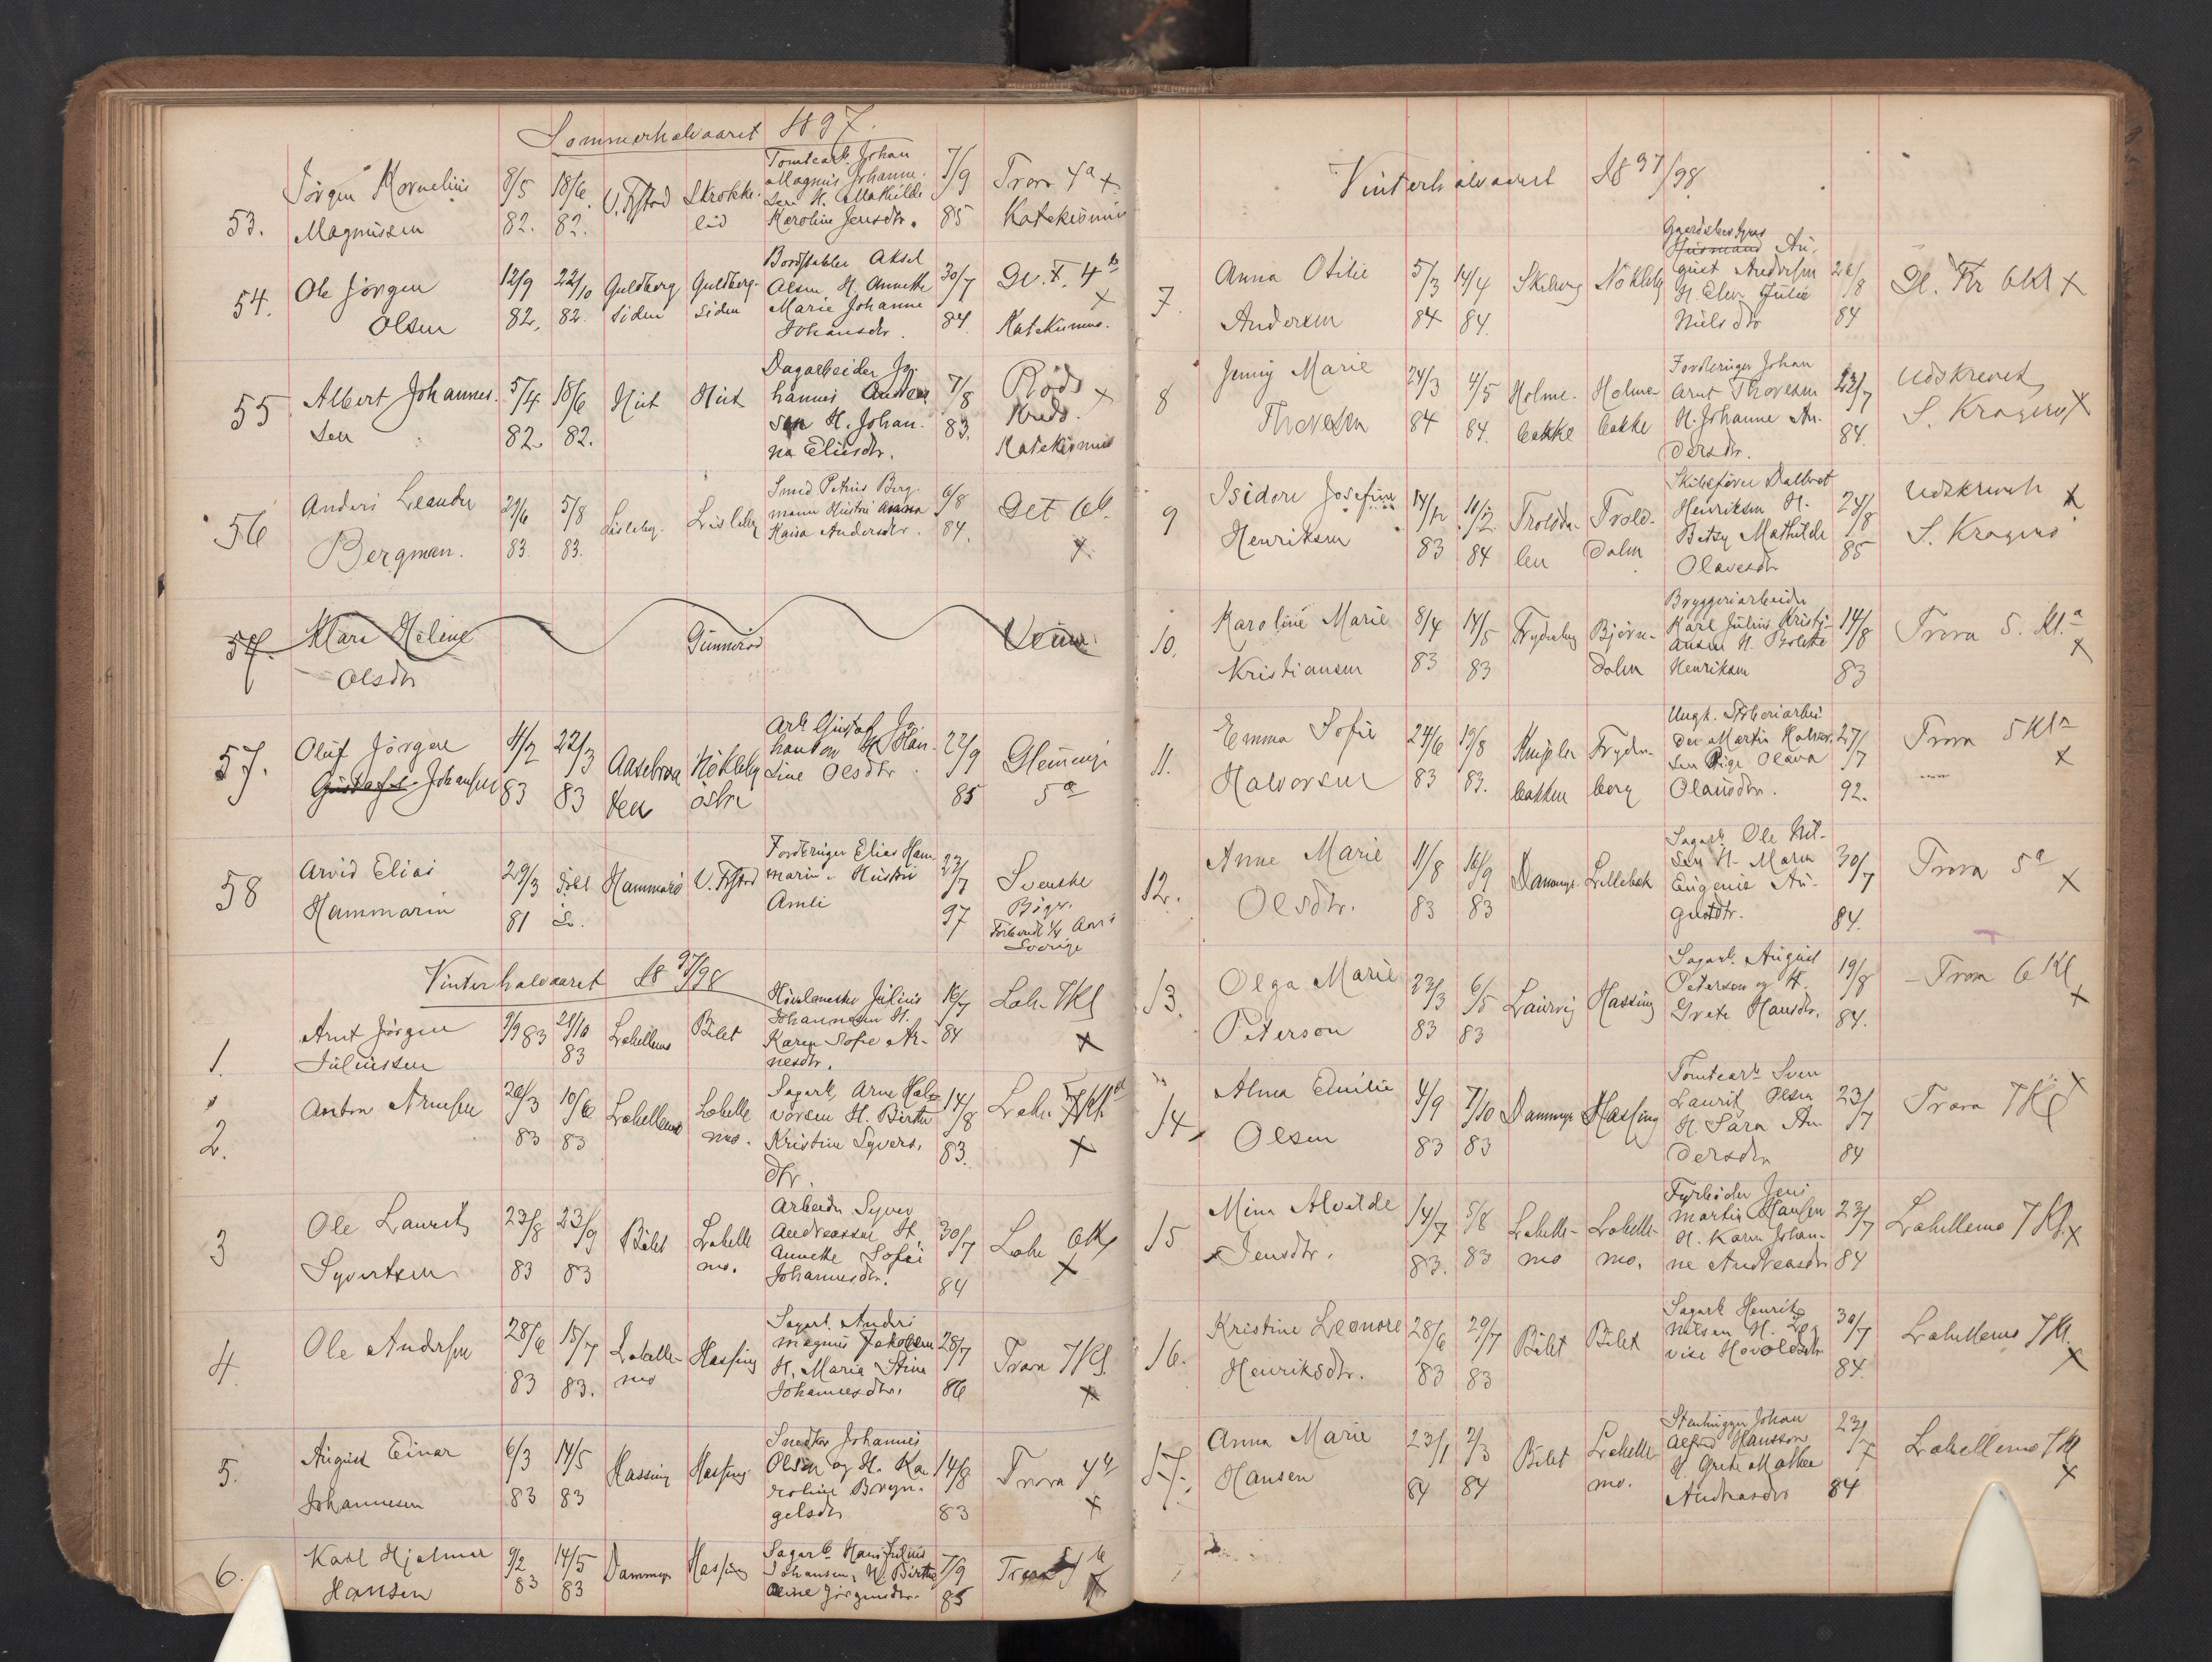 Sommerhalvaaret 1897.
53. Jörgen Kornelius Magnussen 8/5 82. 18/6 82. V. Fjstad Skrokke-
lid Tomtearb. Johan
Magnus Johanne-
sen H. Mathilde
Karoline Jensdtr. 7/9 85 Trara 4a x
Katekismus
54. Ole Jörgen
Olsen 12/9 82. 22/10 82. Guldberg
siden Guldberg-
siden Bordstabler Aksel
Olsen H. Annette
Marie Johanne
Johansdtr. 30/7 84. Gl. F. 4b
x
Katekismus.
55 Albert Johannes-
sen 5/4 82. 18/6 82. Hút Hút Dagarbeider Jo-
hannes Ander
sen H. Johan-
na Eliesdtr. 7/8 83. Röds x
Kreds.
Katekismus
56 Anders Leander
Bergman. 29/6 83. 5/8 83. Lisleby. Lisleby Smed Petrus Berg-
mann Hustru Anna
Kaisa Andersdtr. 6/8 84. Get 6b.
x
57. Klara Heline
Olsdtr Gunnerød
57. Oluf Jörgen
Gustafsen Johansen 4/2 83 22/3 83 Aasebraa
ten Nökleby
östre Arb. Gustaf Jo-
hansen H. Han-
sine Olsdtr. 22/9 85 Glemmige
5a
58 Arvid Elias
Hammarin 29/3 81 Föbl
Hammarö V. Fjstad Fordringer Elias Ham
marin. Hustru
Amli 23/7 97 Svenske
Böger.
Sverige
Vinterhalvaaret 1897/98
1. Arnt Jörgen
Júliussen 9/9 83 21/10 83 Lahellemo Bílet Hövlemester Július
Johannesen H.
Karen Sofie Ar-
nesdtr. 16/7 84 Lahe 7Kl
x
2. Anton Arnesen 20/3 83 10/6 83 Lahellemo Lahelle
mo. Sagarb. Arne Hal-
vorsen H. Birthe
Kristine Syvers.
dtr. 14/8 83. Lahe 7Kl
x
3 Ole Laurits
Syvertsen 23/8 83 23/9 83 Bílet Lahelle
mo. Arbeider Syver
Andreassen H
Annette Sofie
Johannesdtr. 30/7 84 Lahe 6Kl
x
4. Ole Andersen 28/6 83 15/7 83. Lahelle-
mo Hassing Sagarb. Anders
Magnus Jakobsen
H. Maria Stine
Johannesdtr. 28/7 86 Trara 7Kl.
x
5. August Einar
Johannesen 6/3 83 14/5 83 Hassing Hassing Snedker Johannes
Olsen og H. Ka
roline Bryn-
gelsdtr 14/8 83 Trara 4b
x
6. Karl Hjalmar
Hansen 9/2 83 14/5 83 Dammyr Hassing Sagarb. Hans Julius
Johansen, H. Birthe
Oline Jörgensdtr. 7/9 85 Trara
Vinterhalvaaret 1897/98
7. Anna Otilie
Andersen 5/3 84 14/4 84. Skiberg Nökleby Gaardsbestyrer
Húsmand Au-
gust Andersen
H. Elen Julie
Nielsdtr 84 Gl. Kr 6Kl x
8 Jenny Marie
Thoresen 24/3 84 4/5 84. Holme-
bakke Holme-
bakke Fordringer Johan
Arnt Thoresen
H. Johanne An-
dersdtr. 23/7 84. Udskrevet
S. Kragerö x
9 Isidore Josefine
Henriksen 14/12 83 10/2 84 Trolda-
len Trold-
dalen Skibsförer Dalbert
Henriksen H.
Betzy Mathilde
Olavesdtr 24/8 85 Udskreveh x
S. Kragerö
10. Karoline Marie
Kristiansen 8/4 83 14/5 83 Frydenberg Björn-
dalen Bryggeriarbeider
Karl Julius Kristi-
ansen H. Bolette
Henriksen 14/8 83 Trara 5. Kl.a
x
11. Emma Sofie
Halvorsen 24/6 83 19/8 83. Knipler
bakken Fryden-
berg Ungk. Stiberiarbei
der Martin Halvor-
sen Pige Olava
Olausdtr. 27/7 92. Trara 5Kla
x
12. Anne Marie
Olsdtr. 11/8 83 16/9 83 Dammyr. Lillebæk Sagarb. Ole Nil-
sen H. Maren
Eugenie Au-
gustdtr. 30/7 84. Trara 5a
x
13. Olga Marie
Peterson 23/3 83 6/5 83 Laurvig Hassing Sagarb. August
Peterson og H.
Grete Hansdtr. 19/8 84. Trara 6Kl
x
14. Alma Emilie
Olsen 4/9 83 7/10 83 Dammyr Hassing Tomtearb. Sven
Laurits Olsen
H. Sara An-
dersdtr 23/7 84 Trara 7Kl x
15 Mina Alvilde
Jensdtr. 14/7 83. 5/8 83 Lahelle-
mo Lahelle-
mo. Fyrböder Jens
Martin Hansen
H. Karen Johan-
ne Andreasdtr 23/7 84 Lahellemo 7Kl. x
16. Kristine Leonore
Henriksdtr. 28/6 83 29/7 83 Bílet Bílet Sagarb Henrik
Nilsen H. Lo
vise Havoldsdtr 30/7 84. Lahellemo 7Kl.
x
17. Anna Marie
Hansen 23/1 84 2/3 84 Bílet Lahelle
mo. Stenhugger Johan
Alfred Hansson
H. Grete Mathea
Andreasdtr 23/7 84 Lahellemo 7Kl
x